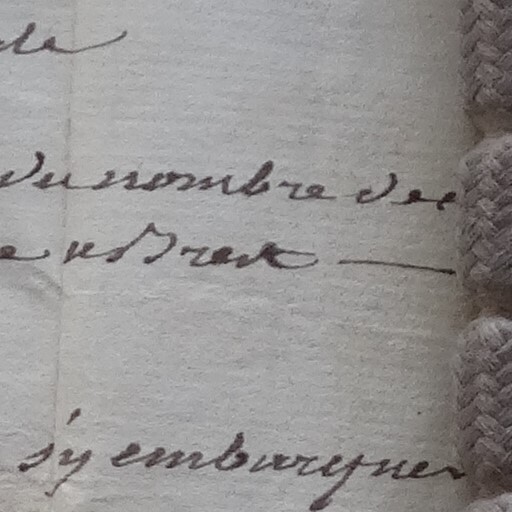 de
du nombre de
à Brest
s'y embarquer